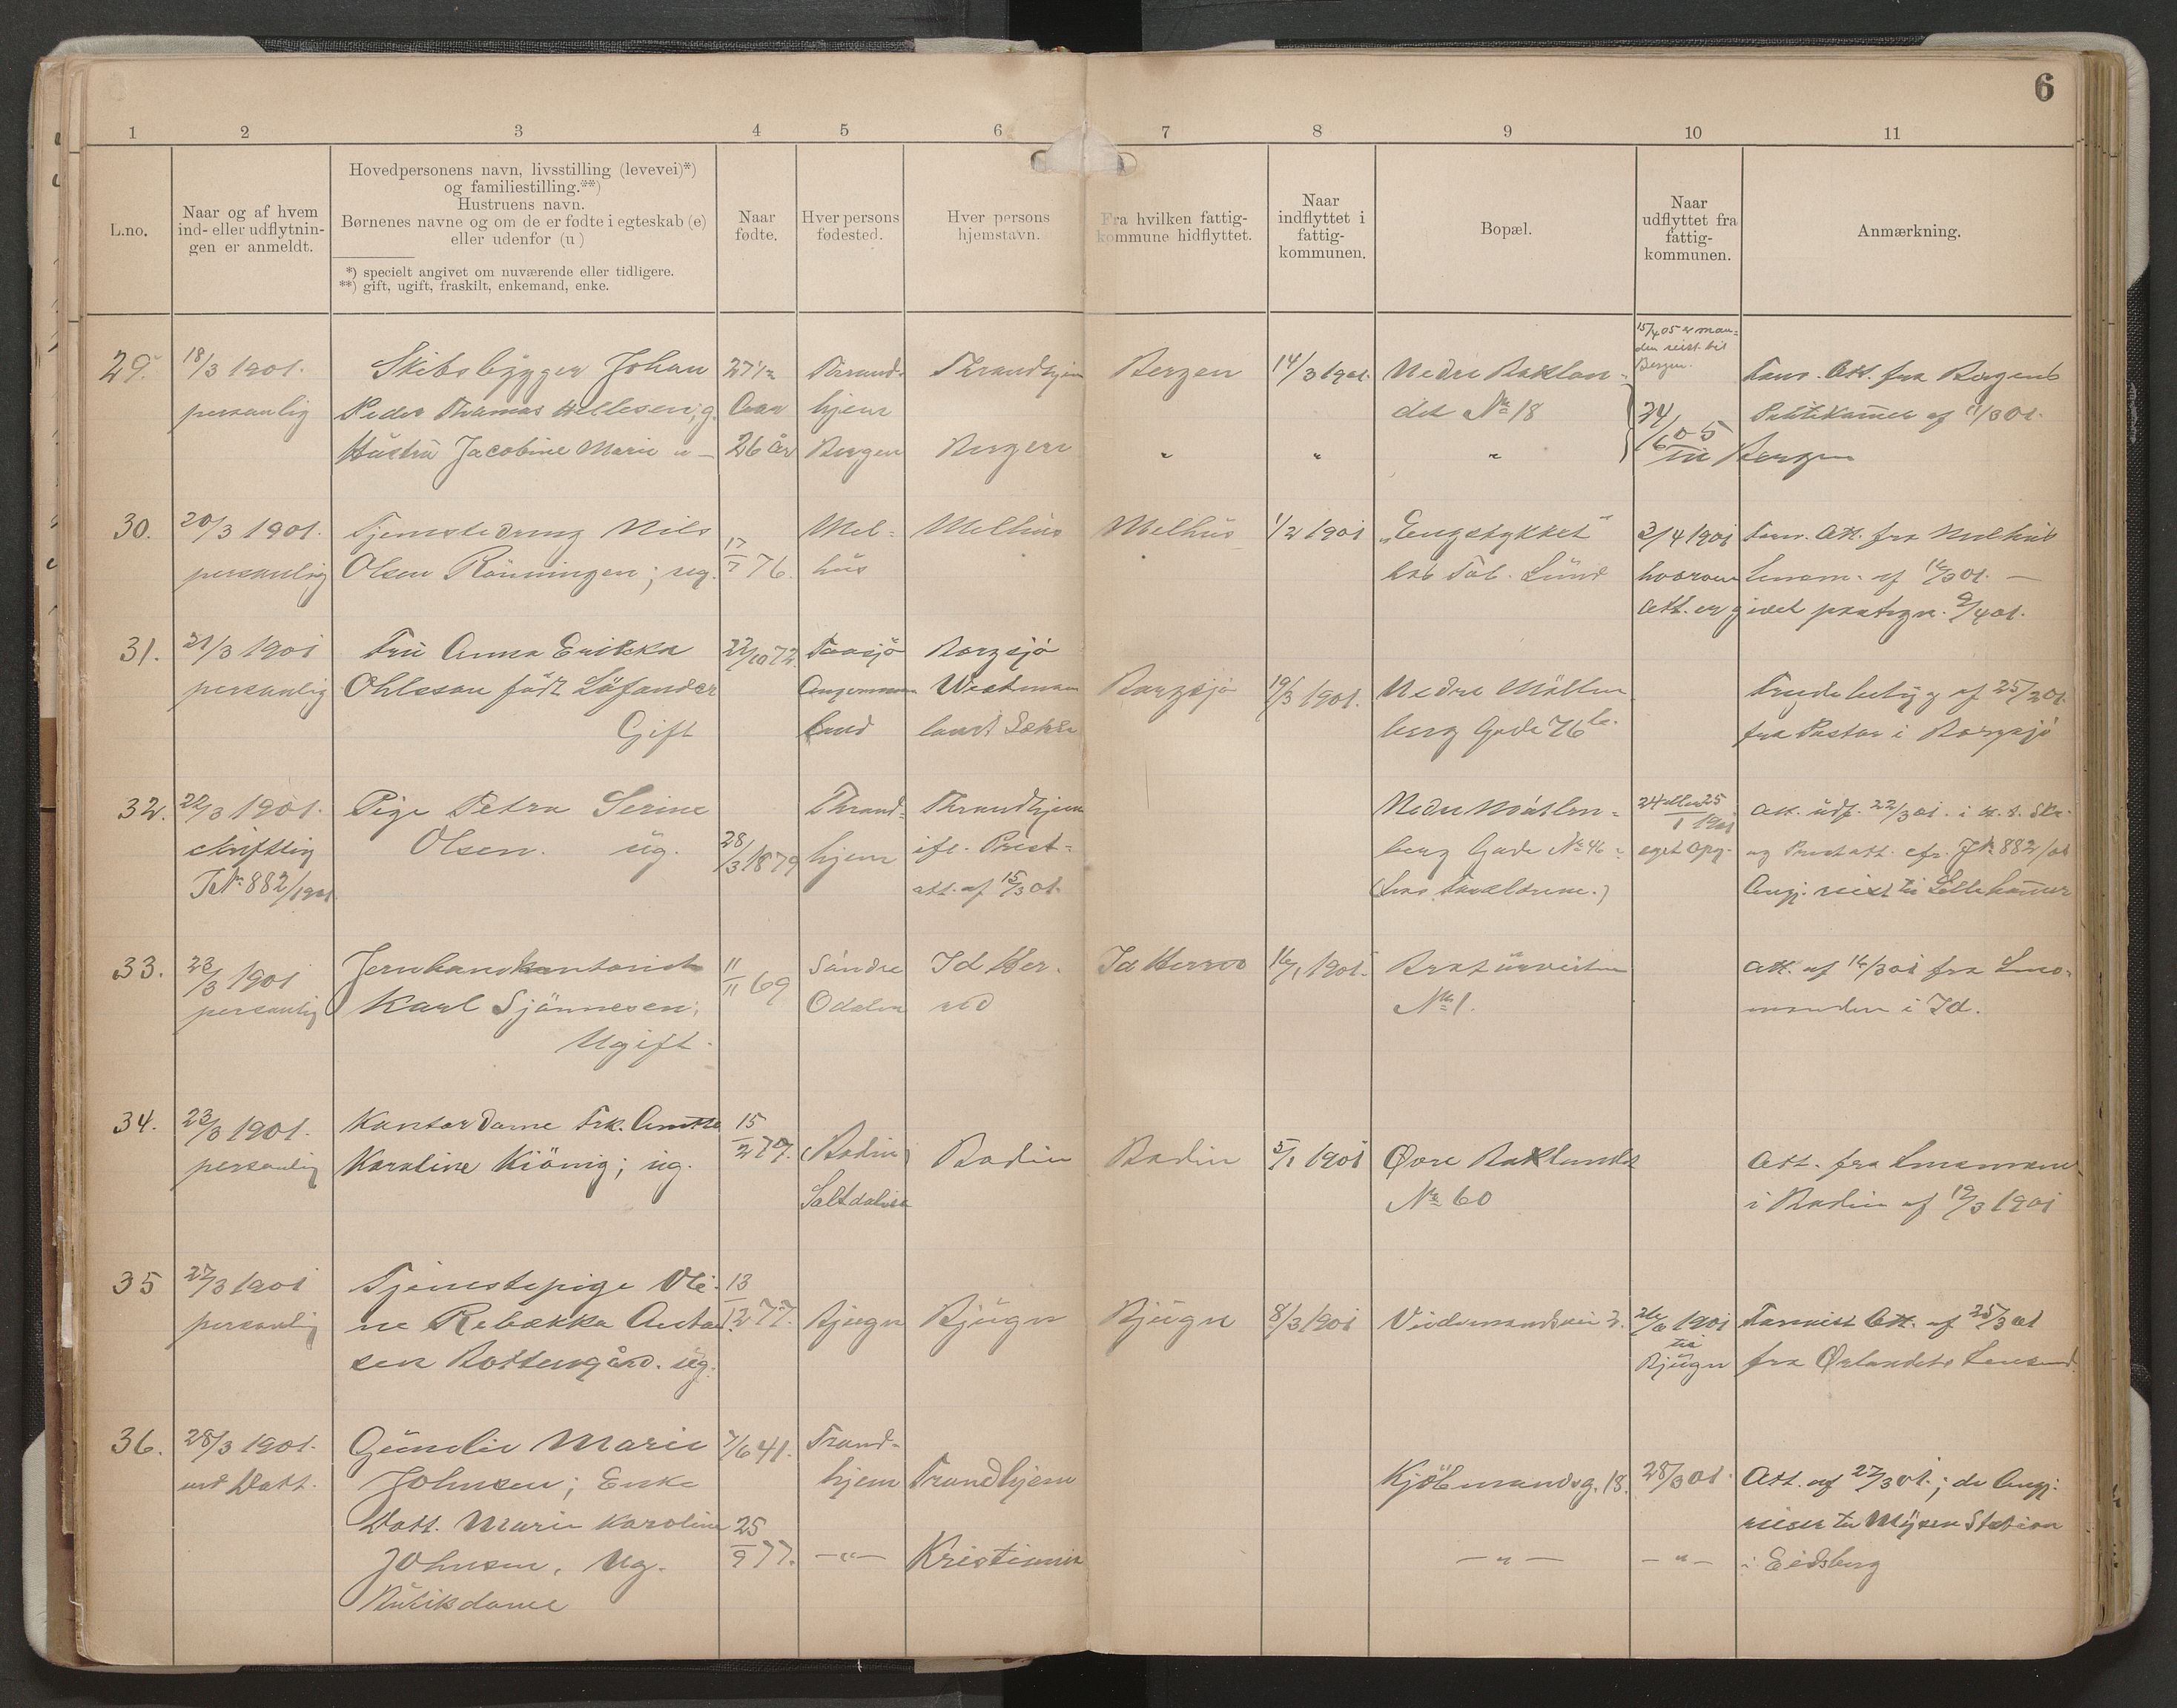 6
1 2 3 4 5 6 7 8 9 10 11
L.no.
Naar og af hvem
ind- eller udflytnin-
gen er anmeldt.
Hovedpersonens navn, livsstilling (levevei)*)
og familiestilling.**)
Hustruens navn.
Børnenes navne og om de er fødte i egteskab (e)
eller udenfor (u )
*) specielt angivet om nuværende eller tidligere.
**) gift, ugift, fraskilt, enkemand, enke.
Naar
fødte.
Hver persons
fødested.
Hver persons
hjemstavn.
Fra hvilken fattig-
kommune hidflyttet.
Naar
indflyttet i
fattig-
kommunen.
Bopæl.
Naar
udflyttet fra
fattig-
kommunen.
Anmærkning.
29.
18/3 1901.
personlig
Skibsbygger Johan
Peder Thomas Hellesen; g.
Hustru Jacobine Marie
27 1/2
Aar
26 år
Thrond-
hjem
Bergen
Throndhjem
Bergen
Bergen
"
14/3 1901.
"
Nedre Baklan-
det No 18
"
15/4 05 er man-
den reist til
Bergen.
24/6 05
til Bergen
Forv. Att. fra Bergens
Politikammer af 11/3 01.
30.
20/3 1901.
personlig
Tjenestedreng Nils
Olsen Rönningen; ug.
17/7 76.
Mel-
hus
Melhus
Melhus
1/2 1901
"Engstykket"
hos Fab. Lund
3/4 1901
hvorom
Att. er givet paategn. 2/4 01.
Forv. Att. fra Melhus
Lensm. af 16/3 01. —
31.
21/3 1901
personlig
Fru Anna Erikka
Ohlsson född Löfander
Gift
22/10 72.
Taasjö
Angerman
land
Borgsjö
Westman
land
Borgsjö
19/3 1901.
Nedre Möllen
berg Gade 76
af 25/2 01.
fra Pastor i Borgsjö
32.
22/3 1901.
skriftlig
J No 882/1901
Pige Petra Serine
Olsen. ug.
28/3 1879
Thrond-
hjem
Throndhjem
ifl. Prest-
att. af 15/3 01.
Nedre Möllen-
berg Gade No 46
24 eller 25
1 1901
eget Opg.
Att. udf. 22/3 01.
og Prestatt. cfr. J No 882/01
Angj. reist til Lillehammer
33.
23/3 1901
personlig
Jernbanekontorist
Karl Sjönnesen;
Ugift.
11/11 69
Söndre
Odalen
Id Her-
red
Id Herred
16/1 1901.
Bratörveiten
No 1.
Att. af 16/3 01 fra Lens-
manden i Id.
34.
23/3 1901.
personlig
Kontordame Frk.
Karoline Kiönig; ug.
15/2 77.
(Bodin)
Saltdalen
Bodin
Bodin
5/1 1901
Øvre Baklandet
No 60
Att. fra Lensmand
i Bodin af 19/3 1901
35
27/3 1901
personlig
Tjenestepige Oli-
ne Rebekka Anton-
sen Bottengård. ug.
13/12 77.
Bjugn
Bjugn
Bjugn
8/3 1901
Vidumandsvei 2.
1901
til
Bjugn
Forevist Att. af 25/3 01
fra Ørlandets Lensmd.
36.
28/3 1901.
ved Datt.
Gunelie Marie
Johnsen; Enke
Datt. Marie Karoline
Johnsen, Ug.
Butikdame
7/6 41.
25/9 77.
Trond-
hjem
—"—
Trondhjem
Kristiania
Kjöbmandsg. 18.
—"—
28/3 01.
—"—
Att. af 27/3 01.; de Angj.
reiser til Mysen Station
i Eidsberg